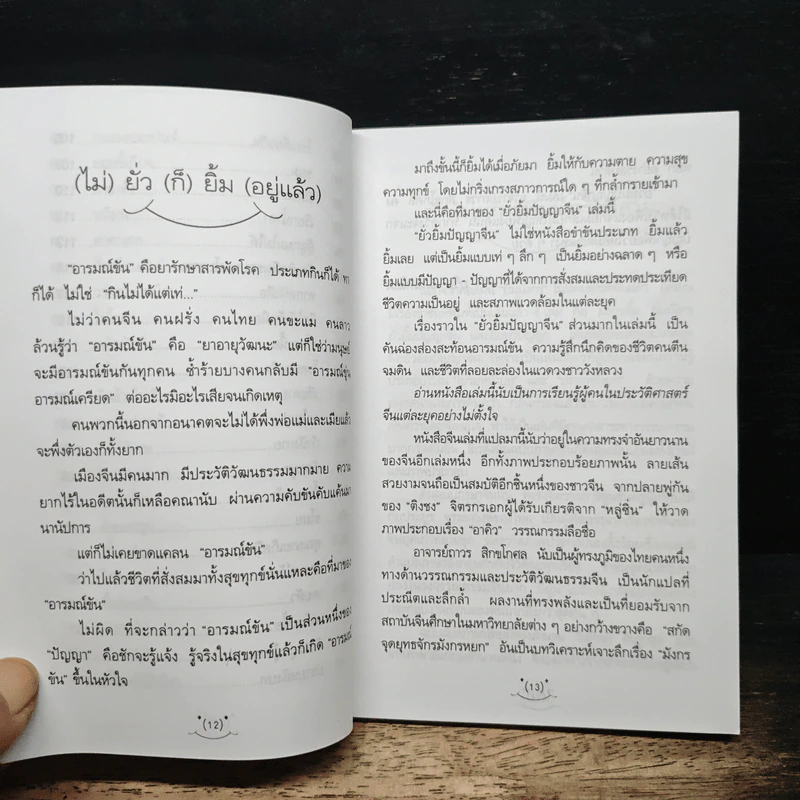 (ไม่) ยั่ว (ก็) ยิ้ม (อยู่แล้ว)
"อารมณ์ขัน" คือยารักษาสารพัดโรค ประเภทกินก็ได้ ทา
ก็ได้ ไม่ใช่ "กินไม่ได้แต่เท่..."
ไม่ว่าคนจีน คนฝรั่ง คนไทย คนขะแม คนลาว
ล้วนรู้ว่า "อารมณ์ขัน" คือ "ยาอายุวัฒนะ" แต่ก็ใช่ว่ามนุษย์
จะมีอารมณ์ขันกันทุกคน ซ้ำร้ายบางคนกลับมี "อารมณ์ขุ่น
อารมณ์เครียด" ต่ออะไรมิอะไรเสียจนเกิดเหตุ
คนพวกนี้นอกจากอนาคตจะไม่ได้พึ่งพ่อแม่และเมียแล้ว
จะพึ่งตัวเองก็ทั้งยาก
เมืองจีนมีคนมาก มีประวัติวัฒนธรรมมากมาย ความ
ยากไร้ในอดีตนั้นก็เหลือคณานับ ผ่านความคับขันคับแค้นมา
นานัปการ
แต่ก็ไม่เคยขาดแคลน "อารมณ์ขัน"
ว่าไปแล้วชีวิตที่สั่งสมมาทั้งสุขทุกข์นั่นแหละคือที่มาของ
"อารมณ์ขัน"
ไม่ผิด ที่จะกล่าวว่า "อารมณ์ขัน" เป็นส่วนหนึ่งของ
"ปัญญา" คือชักจะรู้แจ้ง รู้จริงในสุขทุกข์แล้วก็เกิด "อารมณ์
ขัน" ขึ้นในหัวใจ
(12)
มาถึงขั้นนี้ก็ยิ้มได้เมื่อภัยมา ยิ้มให้กับความตาย ความสุข
ความทุกข์ โดยไม่กริ่งเกรงสภาวการณ์ใด ๆ ที่กล้ำกรายเข้ามา
และนี่คือที่มาของ "ยั่วยิ้มปัญญาจีน" เล่มนี้
"ยั่วยิ้มปัญญาจีน" ไม่ใช่หนังสือขำขันประเภท ยิ้มแล้ว
ยิ้มเลย แต่เป็นยิ้มแบบเท่ ๆ ลึก ๆ เป็นยิ้มอย่างฉลาด ๆ หรือ
ยิ้มแบบมีปัญญา - ปัญญาที่ได้จากการสั่งสมและประทดประเทียด
ชีวิตความเป็นอยู่ และสภาพแวดล้อมในแต่ละยุค
เรื่องราวใน "ยั่วยิ้มปัญญาจีน" ส่วนมากในเล่มนี้ เป็น
คันฉ่องส่องสะท้อนอารมณ์ขัน ความรู้สึกนึกคิดของชีวิตคนตีน
จมดิน และชีวิตที่ลอยละล่องในแวดวงชาววังหลวง
อ่านหนังสือเล่มนี้นับเป็นการเรียนรู้ผู้คนในประวัติศาสตร์
จีนแต่ละยุคอย่างไม่ตั้งใจ
หนังสือจีนเล่มที่แปลมานี้นับว่าอยู่ในความทรงจำอันยาวนาน
ของจีนอีกเล่มหนึ่ง อีกทั้งภาพประกอบร้อยภาพนั้น ลายเส้น
สวยงามจนถือเป็นสมบัติอีกชิ้นหนึ่งของชาวจีน จากปลายพู่กัน
ของ "ติงชง" จิตรกรเอกผู้ได้รับเกียรติจาก "หลู่ซิ่น" ให้วาด
ภาพประกอบเรื่อง "อาคิว" วรรณกรรมลือชื่อ
อาจารย์ถาวร สิกขโกศล นับเป็นผู้ทรงภูมิของไทยคนหนึ่ง
ทางด้านวรรณกรรมและประวัติวัฒนธรรมจีน เป็นนักแปลที่
ประณีตและลึกล้ำ ผลงานที่ทรงพลังและเป็นที่ยอมรับจาก
สถาบันจีนศึกษาในมหาวิทยาลัยต่าง ๆ อย่างกว้างขวางคือ "สกัด
จุดยุทธจักรมังกรหยก" อันเป็นบทวิเคราะห์เจาะลึกเรื่อง "มังกร
(13)